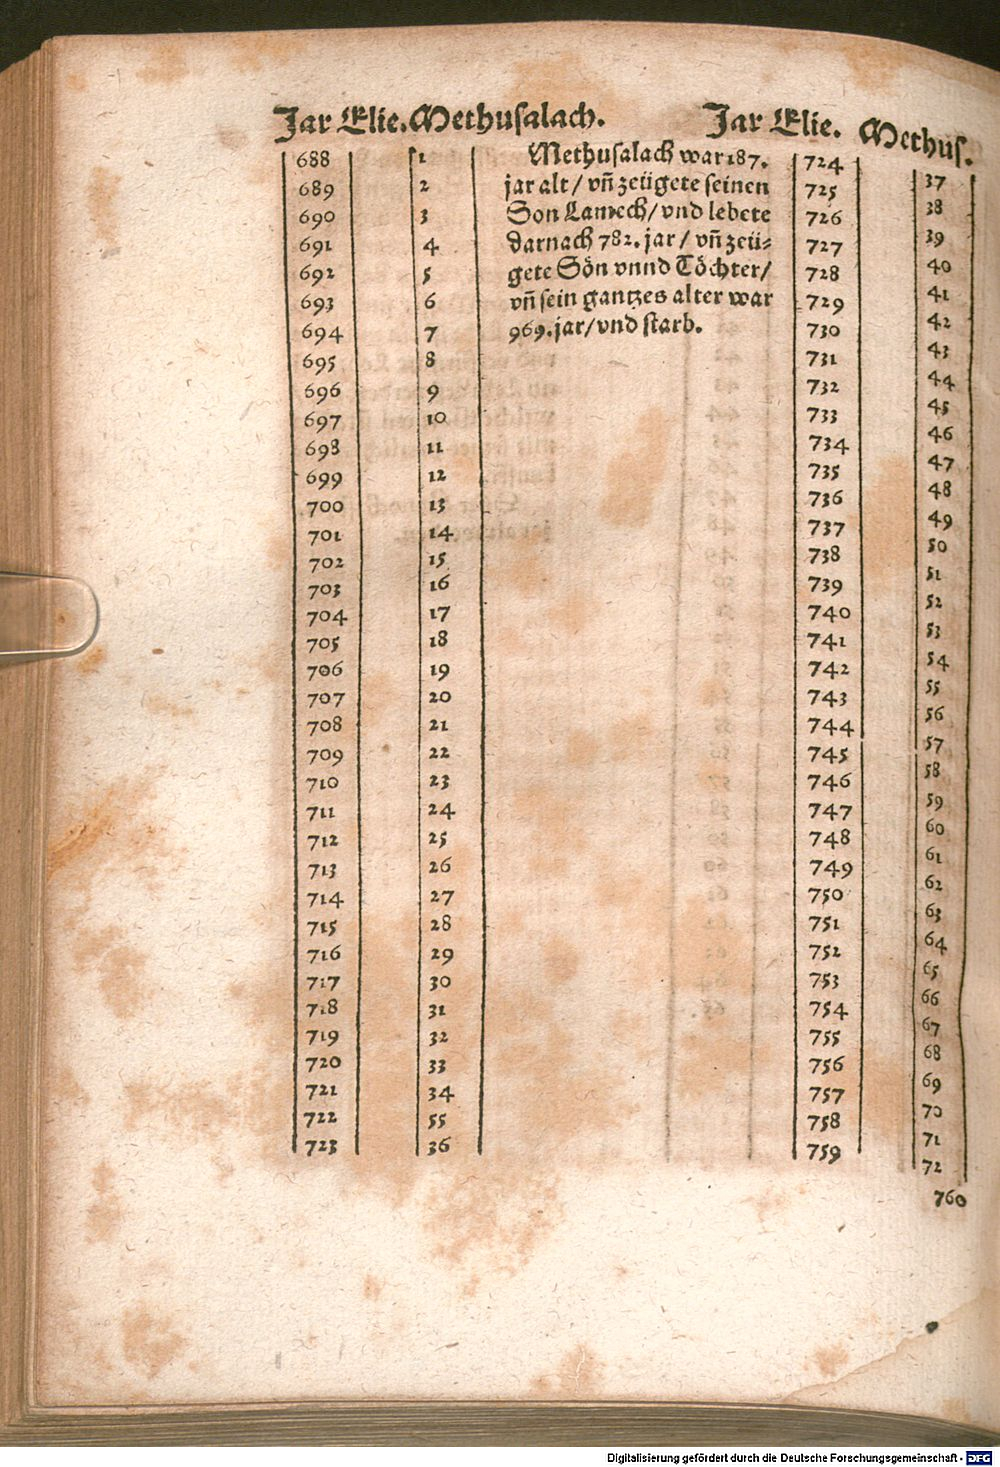 Jar Elie. Methusalach.
688 1
689 2
690 3
691 4
692 5
693 6
694 7
695 8
696 9
697 10
698 11
699 12
700 13
701 14
702 15
703 16
704 17
705 18
706 19
707 20
708 21
709 22
710 23
711 24
712 25
713 26
714 27
715 28
716 29
717 30
718 31
719 32
720 33
721 34
722 55
723 36
Methusalach war 187.
jar alt / vñ zeügete seinen
Son Lamech / vnd lebete
darnach 782. jar / vñ zeü⸗
gete Sön vnnd Töchter /
vñ sein gantzes alter war
969. jar / vnd starb.
Jar Elie. Methus.
724 37
725 38
726 39
727 40
728 41
729 42
730 43
731 44
732 45
733 46
734 47
735 48
736 49
737 50
738 51
739 52
740 53
741 54
742 55
743 56
744 57
745 58
746 59
747 60
748 61
749 62
750 63
751 64
752 65
753 66
754 67
755 68
756 69
757 70
758 71
759 72
760
Digitalisierung gefördert durch die Deutsche Forschungsgemeinschaft - DFG